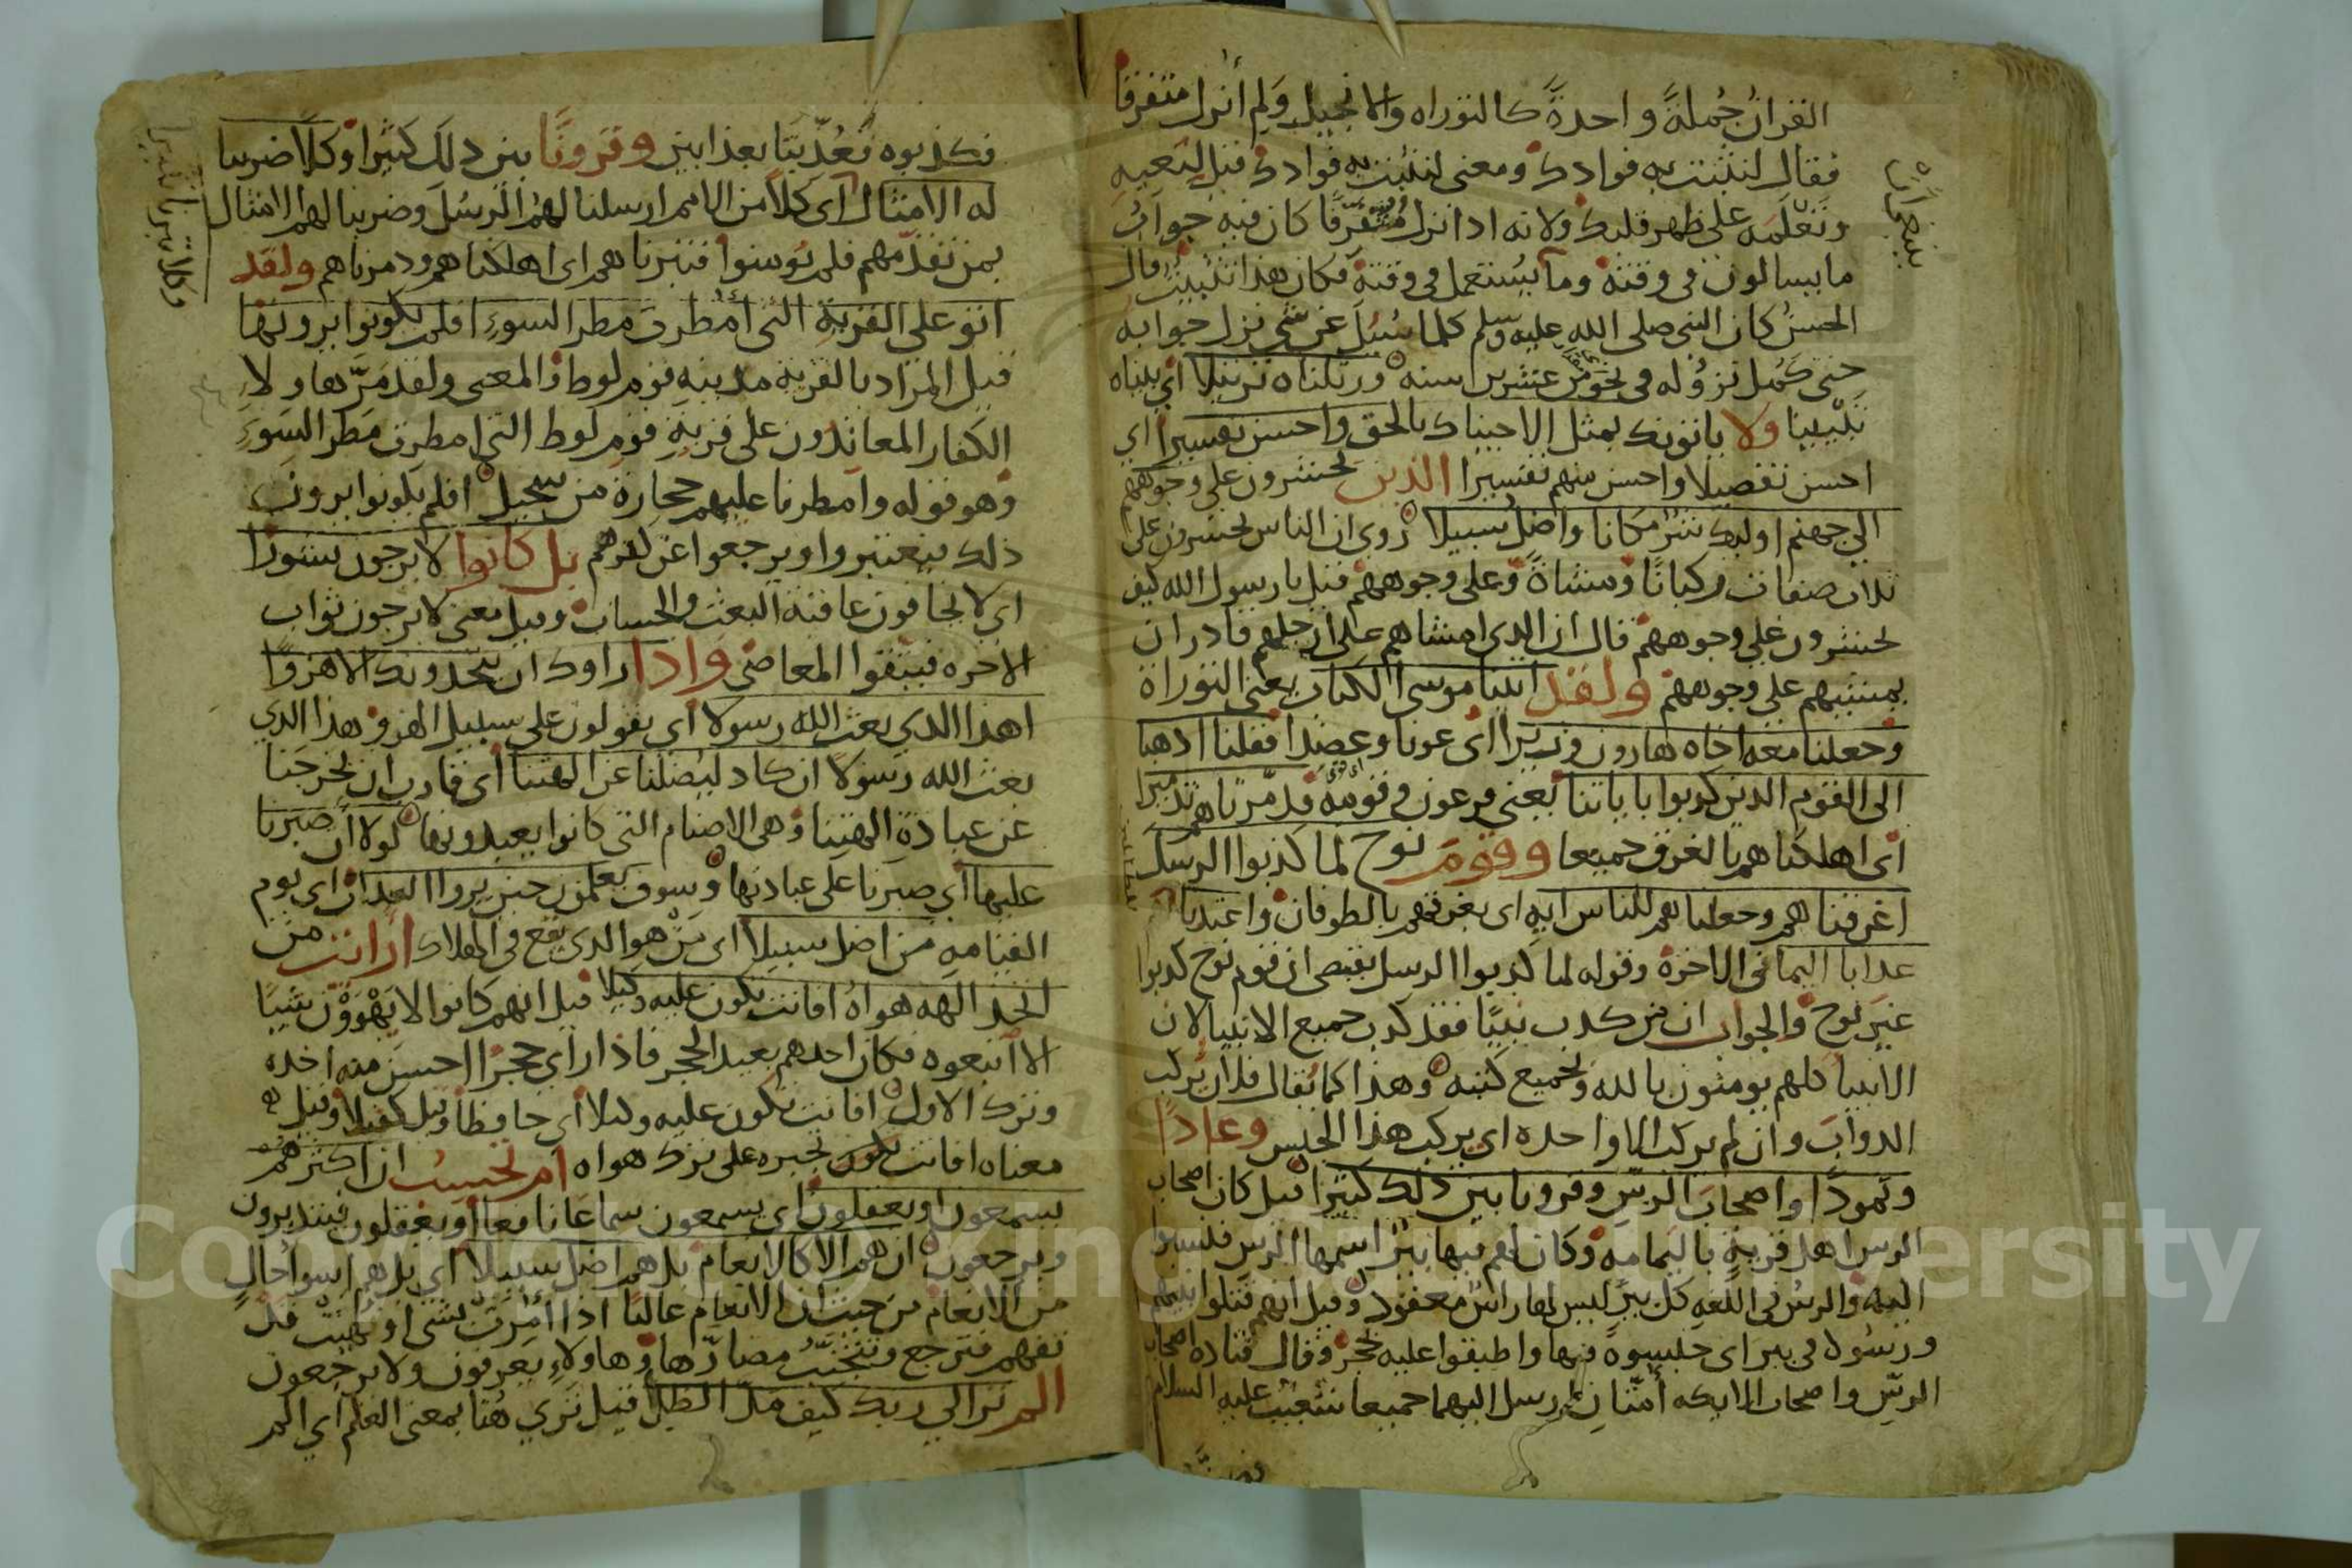 القران جملةً واحدةً كالتوراه والانجيل ولم أنزل متفرقا
فقال لنثبت به فوادك ومعنى لنثبت به فوادك قيل لتعيه
وتعلمه على ظهر قلبك ولانه اذا نزل متفرقًا كان فيه جواب
ما يسالون في وقته وما يستعمل في وقته فكان هذا تثبيت قال
الحسن كان النبي صلى الله عليه وسلم كلما سُئل عن شي نزل جوابه
حتى كمل نزوله في نحو من عشرين سنه ورتلناه ترتيلا اي بيناه
تبيينا ولا ياتونك بمثل الا جيناك بالحق واحسن تفسيرا اي
احسن تفصيلا واحسن منهم تفسيرا الذين يحشرون على وجوههم
الي جهنم اوليك شر مكانا واضل سبيلا روي ان الناس يحشرون على
ثلاث صفات ركبانًا ومشاةً وعلى وجوههم قيل يا رسول الله كيف
يحشرون على وجوههم قال ان الدي امشاهم على ارجلهم قادر ان
يمشيهم على وجوههم ولقد اتينا موسى الكتاب يعني التوراة
وجعلنا معه اخاه هارون وزيرا اي عونا وعضدا فقلنا اذهبا
الى القوم الدين كدبوا باياتنا يعني فرعون وقومه فدمّرناهم تدميرا
اي اهلكناهم بالغرق جميعا وقوم نوح لما كذبوا الرسل
اغرقناهم وجعلناهم للناس ايه اي بغرقهم بالطوفان واعتدنا
عدابا اليما في الاخرة وقوله لما كذبوا الرسل يقتضي ان قوم نوح كدبوا
غير نوح والجواب ان من كدب نبيًا فقد كدب جميع الانبيا لان
الانبيا كلهم يومنون بالله وبجميع كتبه وهذا كما يقال فلان يركب
الدواب وان لم يركب الا واحده اي يركب هذا الجنس وعادًا
وثمودًا واصحاب الرسّ وقرونا بين ذلك كثيرا قيل كان اصحاب
الرس اهل قرية باليمامه وكان لهم فيها بئر اسمها الرس فنسبوا
اليها والرس في اللغه كل بير ليس لها راس معقود وقيل انهم قتلوا نبيهم
ورسوه في بير اي حبسوه فيها واطبقوا عليه بحجر وقال قتاده اصحاب
الرسّ واصحاب الايكه أمّتان ارسل اليهما جميعا شعيب عليه السلام
فكذبوه فعُذّبتا بعذابين وقرونًا بين ذلك كثيرا وكلا ضربنا
له الامثال اي كلا من الامم ارسلنا لهم الرسل وضربنا لهم الامثال
بمن تقدمهم فلم يومنوا فتبرناهم اي اهلكناهم ودمرناهم ولقد
اتو على القرية التي أمطرت مطر السوء افلم يكونوا يرونها
قيل المراد بالقريه مدينه قوم لوط والمعنى ولقد مرّ هاولاء
الكفار المعاندون على قرية قوم لوط التي امطرت مطر السوء
وهو قوله وامطرنا عليهم حجارة من سجيل افلم يكونوا يرون
ذلك فيعتبروا ويرجعوا عن كفرهم بل كانوا لا يرجون نشورا
اي لا يخافون عاقبة البعث والحساب وقيل يعني لا يرجون ثواب
الاخره فيتقوا المعاصي واذا راوك ان يتخدونك الا هزوًا
اهذا الدي بعث الله رسولا اي يقولون على سبيل الهزو هذا الدي
بعث الله رسولا ان كاد ليضلنا عن الهتنا اي قارب ان يخرجنا
عن عبادة الهتنا وهي الاصنام التي كانوا يعبدونها لولا أن صبرنا
عليها اي صبرنا على عبادتها وسوف يعلمون حين يروا العداب اي يوم
القيامه من اضل سبيلا اي من هو الدي يقع في الهلاك ارايت من
اتخد الهه هواه افانت تكون عليه وكيلا قيل انهم كانوا لا يهوون شيًا
الا اتبعوه فكان احدهم يعبد الحجر فاذا راي حجرًا احسن منه اخده
وترك الاول افانت تكون عليه وكيلا اي حافظا وقيل كفيلا وقيل
معناه افانت تكون تجبره على ترك هواه ام تحسب ان اكثرهم
يسمعون او يعقلون اي يسمعون سماعا نافعا او يعقلون فيتدبرون
ويرجعون ان هم الا كالانعام بل هم اضل سبيلا اي بل هم اسوا حال
من الانعام من حيث ان الانعام غالبًا اذا أُمرت بشي او نُهيت قد
تفهم فترجع وتتجنب مضارّها وهاولاءِ يعرفون ولا يرجعون
الم تر الي ربك كيف مد الظل قيل تري هنا بمعنى العلم اي الم
وكلا تبرنا تتبيرا
Copyright © King Saud University